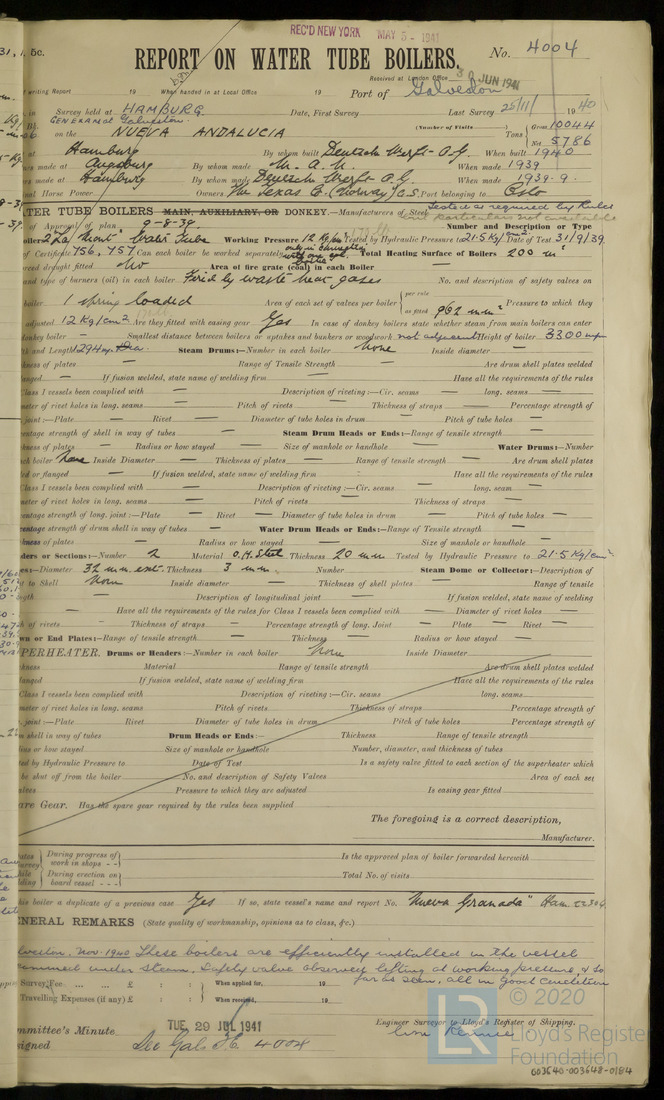 REC'D NEW YORK MAY 5 - 1941
31, 1. 5c. REPORT ON WATER TUBE BOILERS. No. 4004
Received at London Office JUN 1941
writing Report 19 When handed in at Local Office 19 Port of Galveston
in Survey held at HAMBURG Date, First Survey Last Survey 25/11/ 1940
GENERAL at Galveston. (Number of Visits )
on the NUEVA ANDALUCIA Tons Gross 10044
Net 5786
at Hamburg By whom built Deutsche Werft-A.G. When built 1940
made at Augsburg By whom made M.A.N. When made 1939
made at Hamburg By whom made Deutsche Werft A.G. When made 1939-9.
Horse Power Owners The Texas Co. (Norway) A.S. Port belonging to Oslo
TER TUBE BOILERS MAIN, AUXILIARY, OR DONKEY.—Manufacturers of Steel Tested as required by Rules
but particulars not available
of Approval of plan 9-8-38. Number and Description or Type
boilers 2 La Mont Water Tube Working Pressure 12 Kg/cm² Tested by Hydraulic Pressure to 21.5 Kg/cm² Date of Test 31/9/39.
of Certificate 756, 757 Can each boiler be worked separately Total Heating Surface of Boilers 200 m²
forced draught fitted No Area of fire grate (coal) in each Boiler —
and type of burners (oil) in each boiler Fired by waste heat gases No. and description of safety valves on
boiler 1 spring loaded Area of each set of valves per boiler { per rule
as fitted 962 mm² Pressure to which they
adjusted 12 Kg/cm² Are they fitted with easing gear Yes In case of donkey boilers state whether steam from main boilers can enter
donkey boiler — Smallest distance between boilers or uptakes and bunkers or woodwork not adjacent Height of boiler 3300 mm
and Length 1294 mm Dia. Steam Drums:—Number in each boiler None Inside diameter —
ness of plates — Range of Tensile Strength — Are drum shell plates welded
flanged — If fusion welded, state name of welding firm — Have all the requirements of the rules
Class I vessels been complied with — Description of riveting:—Cir. seams — long. seams —
meter of rivet holes in long. seams — Pitch of rivets — Thickness of straps — Percentage strength of
joint:—Plate — Rivet — Diameter of tube holes in drum — Pitch of tube holes —
centage strength of shell in way of tubes — Steam Drum Heads or Ends:—Range of tensile strength —
ness of plates — Radius or how stayed — Size of manhole or handhole — Water Drums:—Number
each boiler None Inside Diameter — Thickness of plates — Range of tensile strength — Are drum shell plates
ed or flanged — If fusion welded, state name of welding firm — Have all the requirements of the rules
Class I vessels been complied with — Description of riveting:—Cir. seams — long. seam —
meter of rivet holes in long. seams — Pitch of rivets — Thickness of straps —
centage strength of long. joint:—Plate — Rivet — Diameter of tube holes in drum — Pitch of tube holes —
centage strength of drum shell in way of tubes — Water Drum Heads or Ends:—Range of Tensile strength —
kness of plates — Radius or how stayed — Size of manhole or handhole —
ders or Sections:—Number 2 Material O.H. Steel Thickness 20 mm Tested by Hydraulic Pressure to 21.5 Kg/cm²
es:—Diameter 32 mm ext. Thickness 3 mm. Number Steam Dome or Collector:—Description of
to Shell None Inside diameter — Thickness of shell plates — Range of tensile
ngth — Description of longitudinal joint — If fusion welded, state name of welding
— Have all the requirements of the rules for Class I vessels been complied with — Diameter of rivet holes —
h of rivets — Thickness of straps — Percentage strength of long. Joint — Plate — Rivet —
wn or End Plates:—Range of tensile strength — Thickness — Radius or how stayed —
PERHEATER. Drums or Headers:—Number in each boiler None Inside Diameter
kness Material Range of tensile strength Are drum shell plates welded
langed If fusion welded, state name of welding firm Have all the requirements of the rules
Class I vessels been complied with Description of riveting:—Cir. seams long. seams
meter of rivet holes in long. seams Pitch of rivets Thickness of straps Percentage strength of
joint:—Plate Rivet Diameter of tube holes in drum Pitch of tube holes Percentage strength of
m shell in way of tubes Drum Heads or Ends:— Thickness Range of tensile strength
ius or how stayed Size of manhole or handhole Number, diameter, and thickness of tubes
ted by Hydraulic Pressure to Date of Test Is a safety valve fitted to each section of the superheater which
be shut off from the boiler No. and description of Safety Valves Area of each set
valves Pressure to which they are adjusted Is easing gear fitted
are Gear. Has the spare gear required by the rules been supplied
The foregoing is a correct description,
Manufacturer.
During progress of work in shops - - Is the approved plan of boiler forwarded herewith
During erection on board vessel - - - Total No. of visits
this boiler a duplicate of a previous case Yes If so, state vessel's name and report No. "Nueva Granada" Ham. 22304
NERAL REMARKS (State quality of workmanship, opinions as to class, &c.)
lveston, Nov. 1940 These boilers are efficiently installed in the vessel
examined under steam, Safety valve observed lifting at working pressure, & so
far as seen, all in good condition
Survey Fee ... ... ... £ : : When applied for, 19
Travelling Expenses (if any) £ : : When received, 19
Engineer Surveyor to Lloyd's Register of Shipping.
mmittee's Minute TUE 29 JUL 1941
signed See Gals F.E. 4004
LR © 2020
Lloyd's Register
Foundation
003640-003648-0184